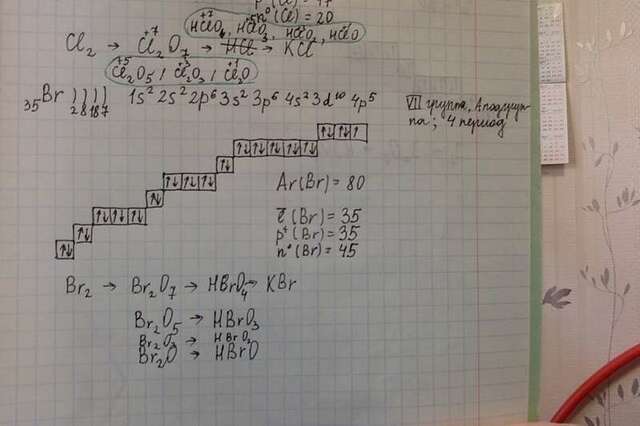 n⁰(Cl) = 20
HClO₄, HClO₃, HClO₂, HClO
Cl₂ → Cl₂O₇ → HCl → KCl
+7
Cl₂O₅, Cl₂O₃, Cl₂O
+5 +3 +1
₃₅Br )))) 1s² 2s² 2p⁶ 3s² 3p⁶ 4s² 3d¹⁰ 4p⁵
2 8 18 7
VII группа, А подгруп-
па; 4 период
Ar(Br) = 80
ē(Br) = 35
p⁺(Br) = 35
n⁰(Br) = 45
Br₂ → Br₂O₇ → HBrO₄ → KBr
Br₂O₅ → HBrO₃
Br₂O₃ → HBrO₂
Br₂O → HBrO